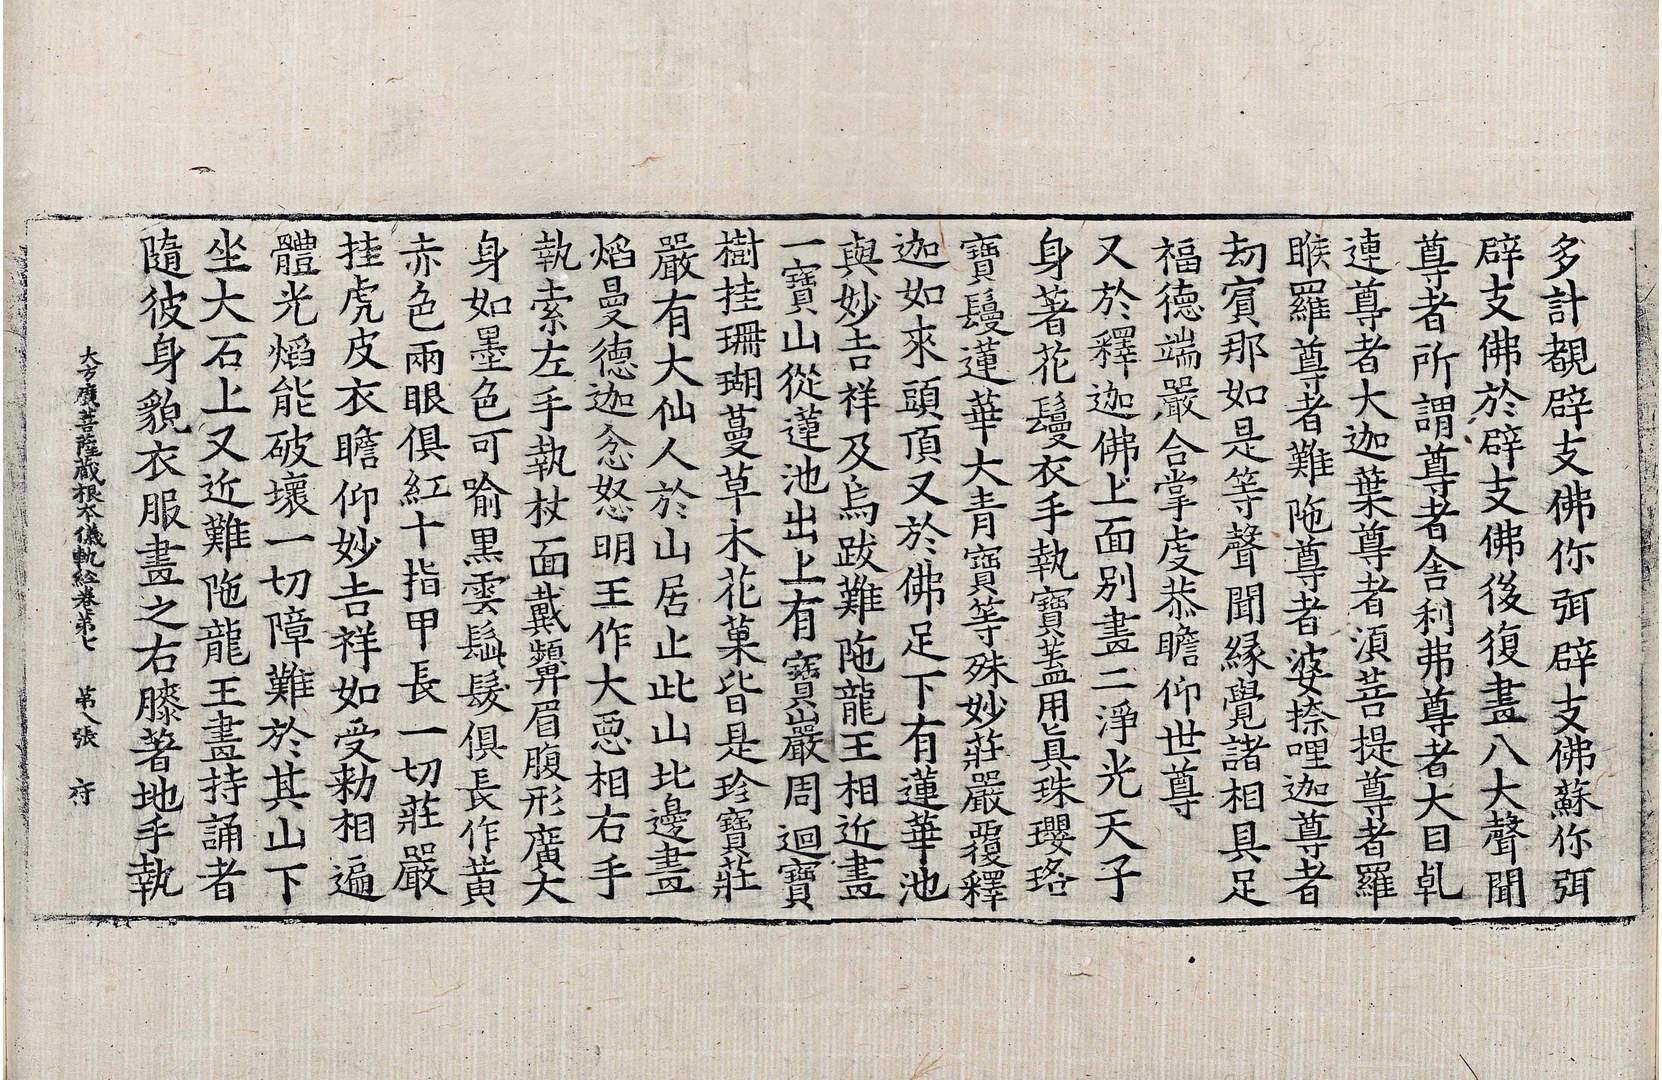 多計覩辟支佛你弭辟支佛蘇你弭
辟支佛於辟支佛後復畫八大聲聞
尊者所謂尊者舍利弗尊者大目乹
連尊者大迦葉尊者湏菩提尊者羅
睺羅尊者難陁尊者婆捺哩迦尊者
劫賔那如是等聲聞縁覺諸相具足
福德端嚴合掌虔恭瞻仰世尊
又於釋迦佛上面別畫二淨光天子
身著花鬘衣手執寶蓋用真珠瓔珞
寶鬘蓮華大青寶等殊妙莊嚴覆釋
迦如來頭頂又於佛足下有蓮華池
與妙吉祥及烏跋難陁龍王相近畫
一寶山從蓮池出上有寶嚴周迴寶
樹挂珊瑚蔓草木花菓皆是珍寶莊
嚴有大仙人於山居止此山北邊畫
焰曼德迦忿怒明王作大惡相右手
執索左手執杖面戴顰眉腹形廣大
身如墨色可喻黒雲鬚髮俱長作黃
赤色兩眼俱紅十指甲長一切莊嚴
挂虎皮衣瞻仰妙吉祥如受勑相遍
體光焰能破壞一切障難於其山下
坐大石上又近難陁龍王畫持誦者
隨彼身貌衣服畫之右膝著地手執
大方廣菩薩藏根本儀軌經卷第七 第八張 府